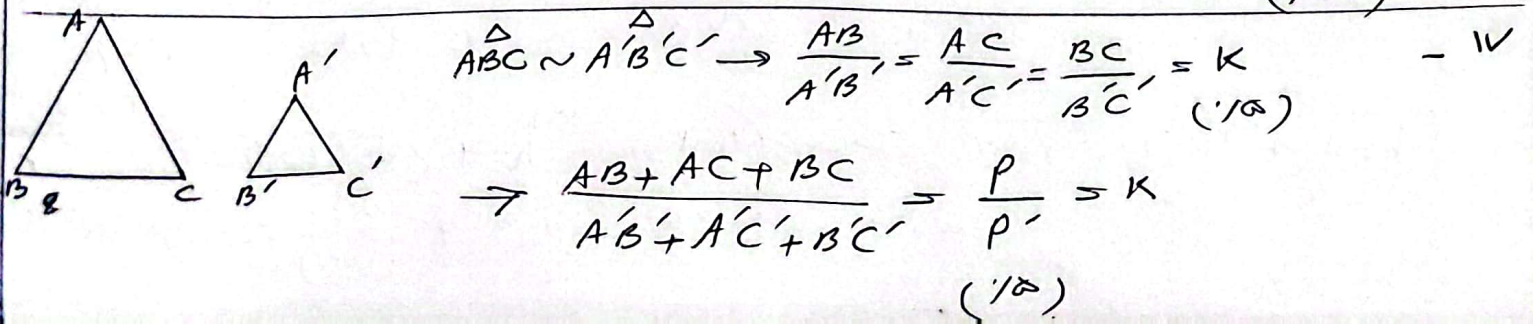 A
A′
B C B′ C′
۱۷ -
△ABC ~ △A′B′C′ → AB/A′B′ = AC/A′C′ = BC/B′C′ = K
(۰/۵)
→ AB + AC + BC / A′B′ + A′C′ + B′C′ = P/P′ = K
(۰/۵)